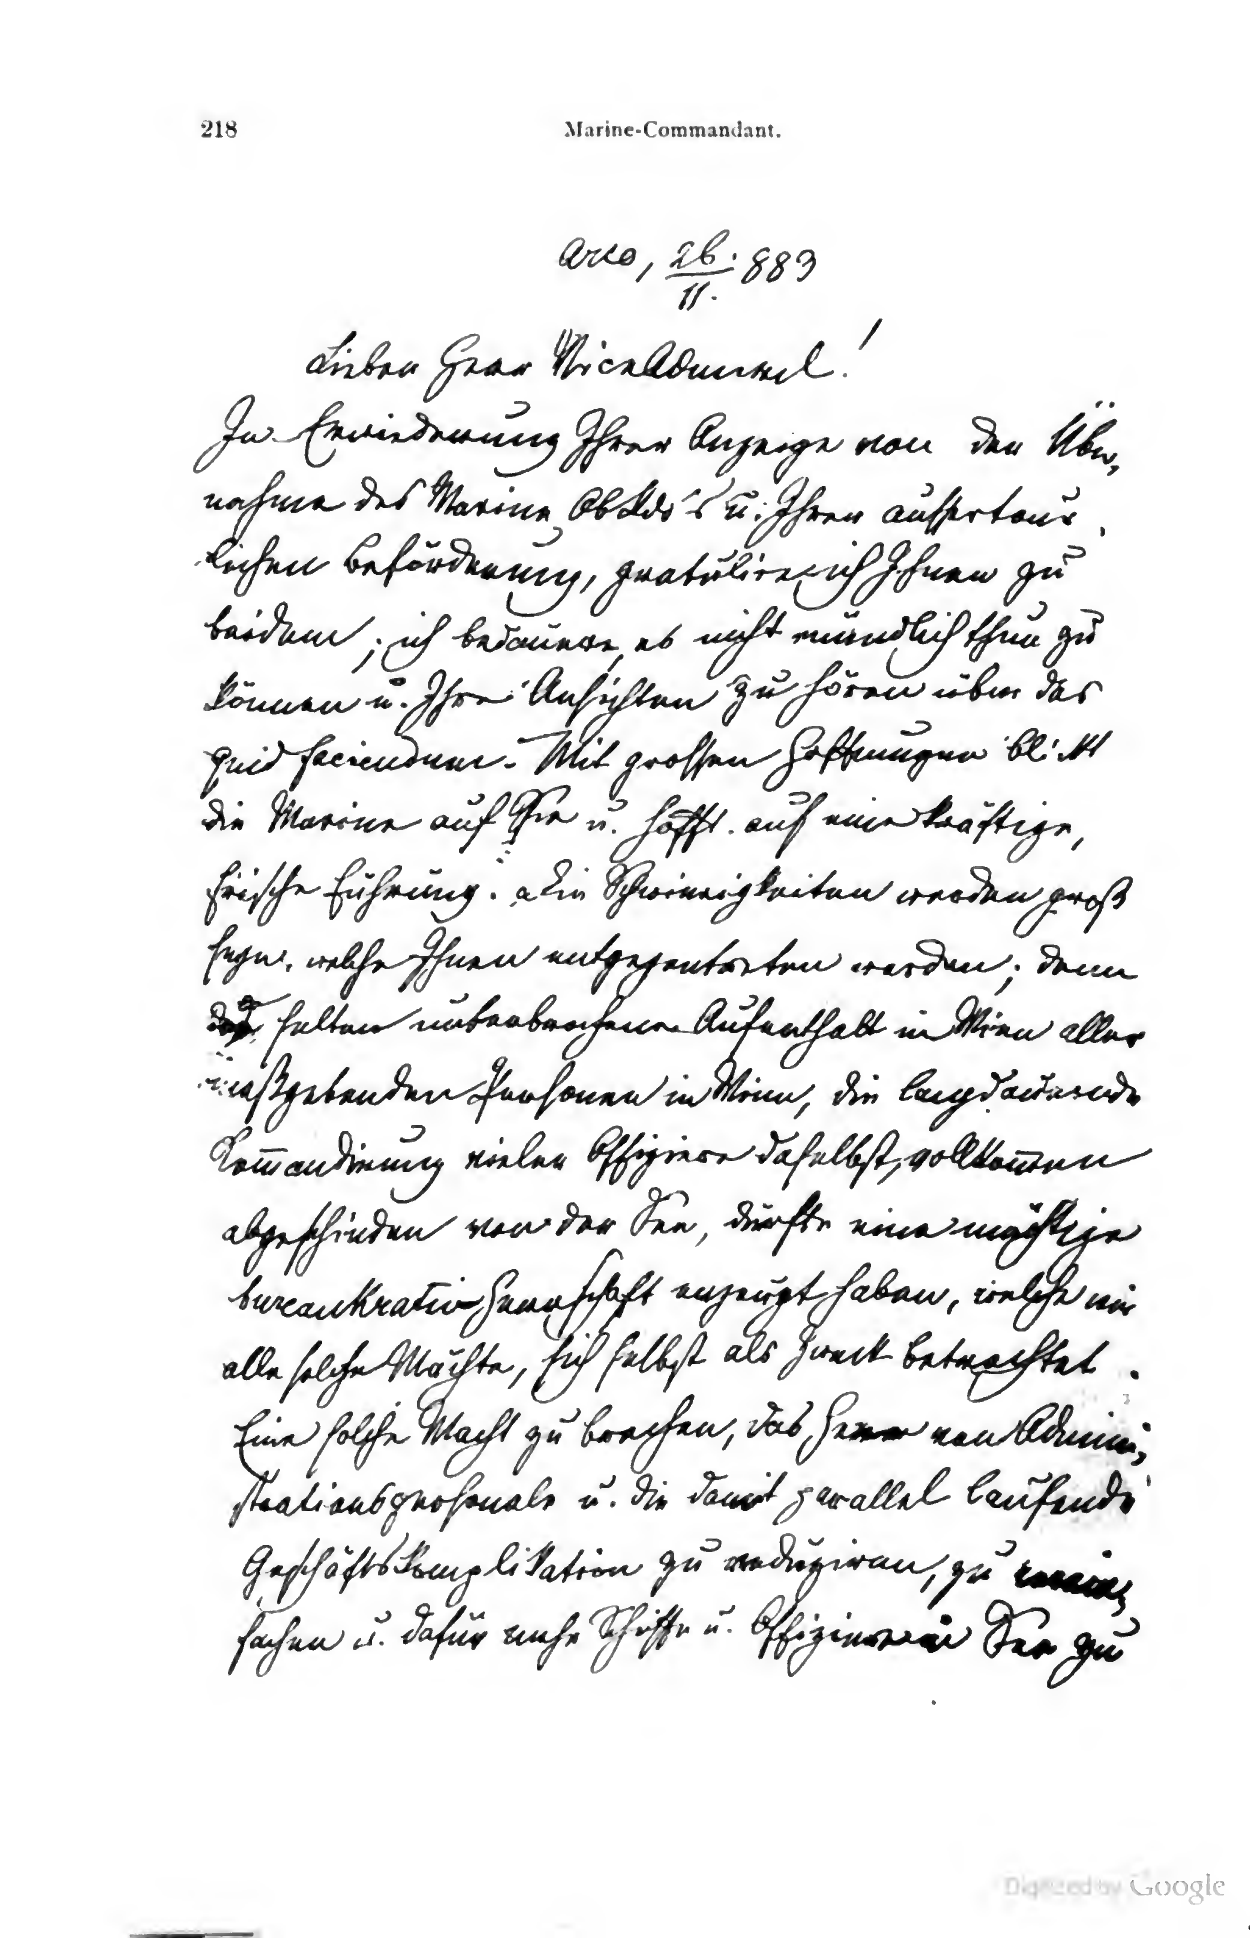 218
Marine-Commandant.
Arco, 26./11. 883
Lieber Herr ViceAdmiral!
In Erwiederung Ihrer Anzeige von der Über-
nahme des Marine ObKdo's u. Ihrer aussertour-
lichen Beförderung, gratulire ich Ihnen zu
beidem; ich bedauere, es nicht mündlich thun zu
können u. Ihre Ansichten zu hören über das
quid faciendum. Mit grossen Hoffnungen blickt
die Marine auf Sie u. hofft auf eine kräftige,
frische Führung. Die Schwierigkeiten werden groß
seyn, welche Ihnen entgegentreten werden; denn
der selten unterbrochene Aufenthalt in Wien aller
maßgebenden Personen in Wien, die langdauernde
Kommandirung vieler Offiziere daselbst, vollkommen
abgeschieden von der See, dürfte eine mächtige
bureaukratie Herrschaft erzeugt haben, welche wie
alle solche Mächte, sich selbst als Zweck betrachtet.
Eine solche Macht zu brechen, das Heer von Admini-
strationspersonale u. die damit parallel laufende
Geschäftskomplikation zu reduziren, zu verein-
fachen u. dafür mehr Schiffe u. Offiziere in See zu
Digitized by Google